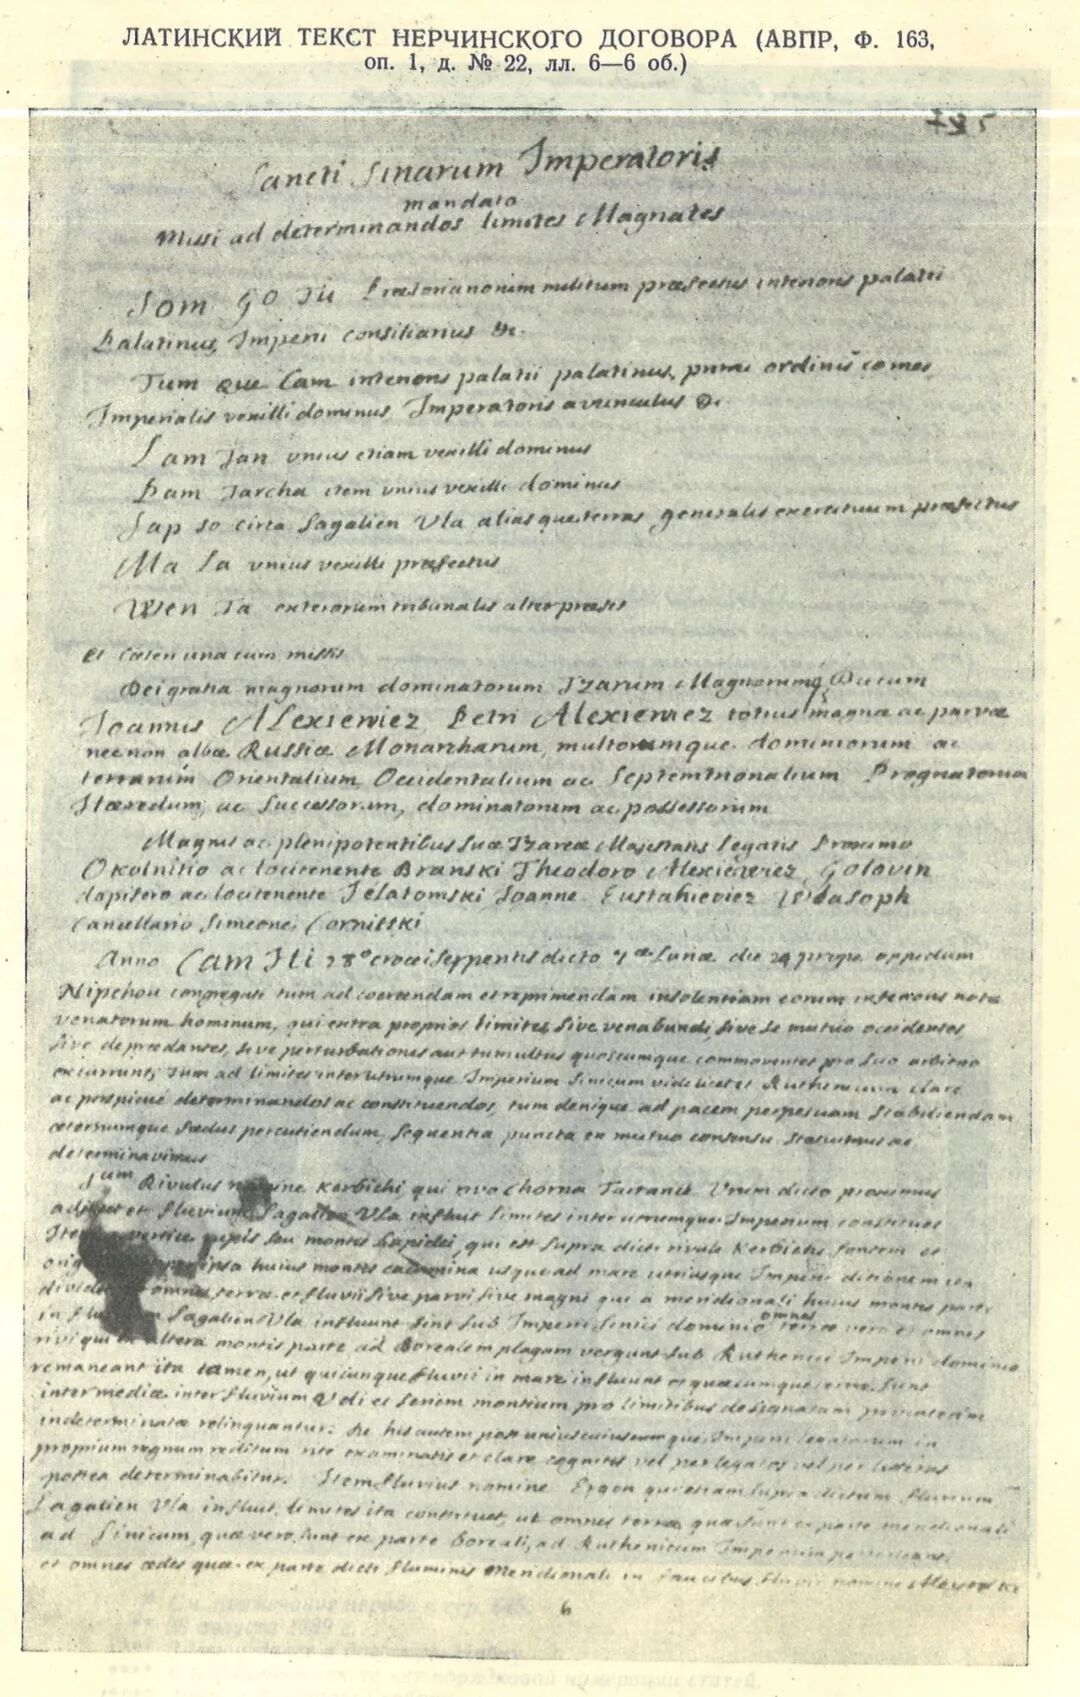 ЛАТИНСКИЙ ТЕКСТ НЕРЧИНСКОГО ДОГОВОРА (АВПР, Ф. 163,
оп. 1, д. № 22, лл. 6—6 об.)
Sancti Sinarum Imperatoris
mandato
Missi ad determinandos limites Magnates
Som Go Tu Praetorianorum militum praefectus interioris palatii
Palatinus, Imperii consiliarius &c.
Tum que Cam interioris palatii palatinus, primi ordinis comes,
Imperialis vexilli dominus, Imperatoris avunculus &c.
Lam Tan unius etiam vexilli dominus
Pam Tarcha item unius vexilli dominus
Sap so circa Sagalien Ula aliasque terras generalis exercituum praefectus
Ma La unius vexilli praefectus
Wen Ta exteriorum tribunalis alter praeses
et caeteri una cum missis
Dei gratia magnorum dominatorum Tzarum Magnorumq. Ducum
Joannis Alexiewiez Petri Alexiewiez totius magnae ac parvae
necnon albae Russiae Monarcharum, multorumque dominiorum ac
terrarum Orientalium, Occidentalium ac Septemtrionalium Prognatorum
Haeredum, ac Successorum, dominatorum ac possessorum
Magnis ac plenipotentibus suae Tzareae Majestatis legatis Proximo
Okolnitio ac locitenente Branski Theodoro Alexiewiez Golovin
dapifero ac locitenente Jelatomski Joanne Eustahievicz Wlasoph
Cancellario Simeone Cornitski
Anno Cam Hi 28º crocei serpentis dicto 7ae Lunae die 24 prope oppidum
Nipchou congregati tum ad coercendam et reprimendam insolentiam eorum inferioris notae
venatorum hominum, qui extra proprios limites, sive venabundi, sive se mutuo occidentes,
sive depraedantes, sive perturbationes aut tumultus quoscumque commoventes pro suo arbitrio
excurrunt, tum ad limites inter utrumque Imperium Sinicum videlicet et Ruthenicum clare
ac perspicue determinandos ac constituendos, tum denique ad pacem perpetuam stabiliendam
aeternumque foedus percutiendum, sequentia puncta ex mutuo consensu statuimus ac
determinavimus
1um Rivulus nomine Kerbichi qui rivo Chorna Tartarice Urum dicto proximus
adjacet et fluvium Sagalien Ula influit limites inter utrumque Imperium constituet
Item vertice rupis seu montis lapidei, qui est supra dicti rivuli Kerbichi fontem et
ipsa huius montis cacumina usque ad mare utriusque Imperii ditionem ita
omnes terrae et fluvii sive parvi sive magni qui a meridionali huius montis parte
in Sagalien Ula influunt sint sub Imperii Sinici dominio, omnes terrae vero et omnes
rivi qui ex altera montis parte ad Borealem plagam vergunt sub Ruthenici Imperii dominio
remaneant ita tamen, ut quicunque fluvii in mare influunt et quaecumque terrae sunt
intermediae inter fluvium Udi et seriem montium pro limitibus designatam
indeterminatae relinquantur. De his autem post uniuscuiuscumque Imperii legatorum in
proprium regnum reditum rite examinatis et clare cognitis vel per legatos vel per litteras
postea determinabitur. Item fluvius nomine Ergon qui etiam supra dictum fluvium
Sagalien Ula influit, limites ita constituet, ut omnes terrae quae sunt ex parte meridionali
ad Sinicum, quae vero sunt ex parte boreali, ad Ruthenicum Imperium
et omnes aedes quae ex parte dicti fluminis Meridionali in faucibus fluvii nomine
6